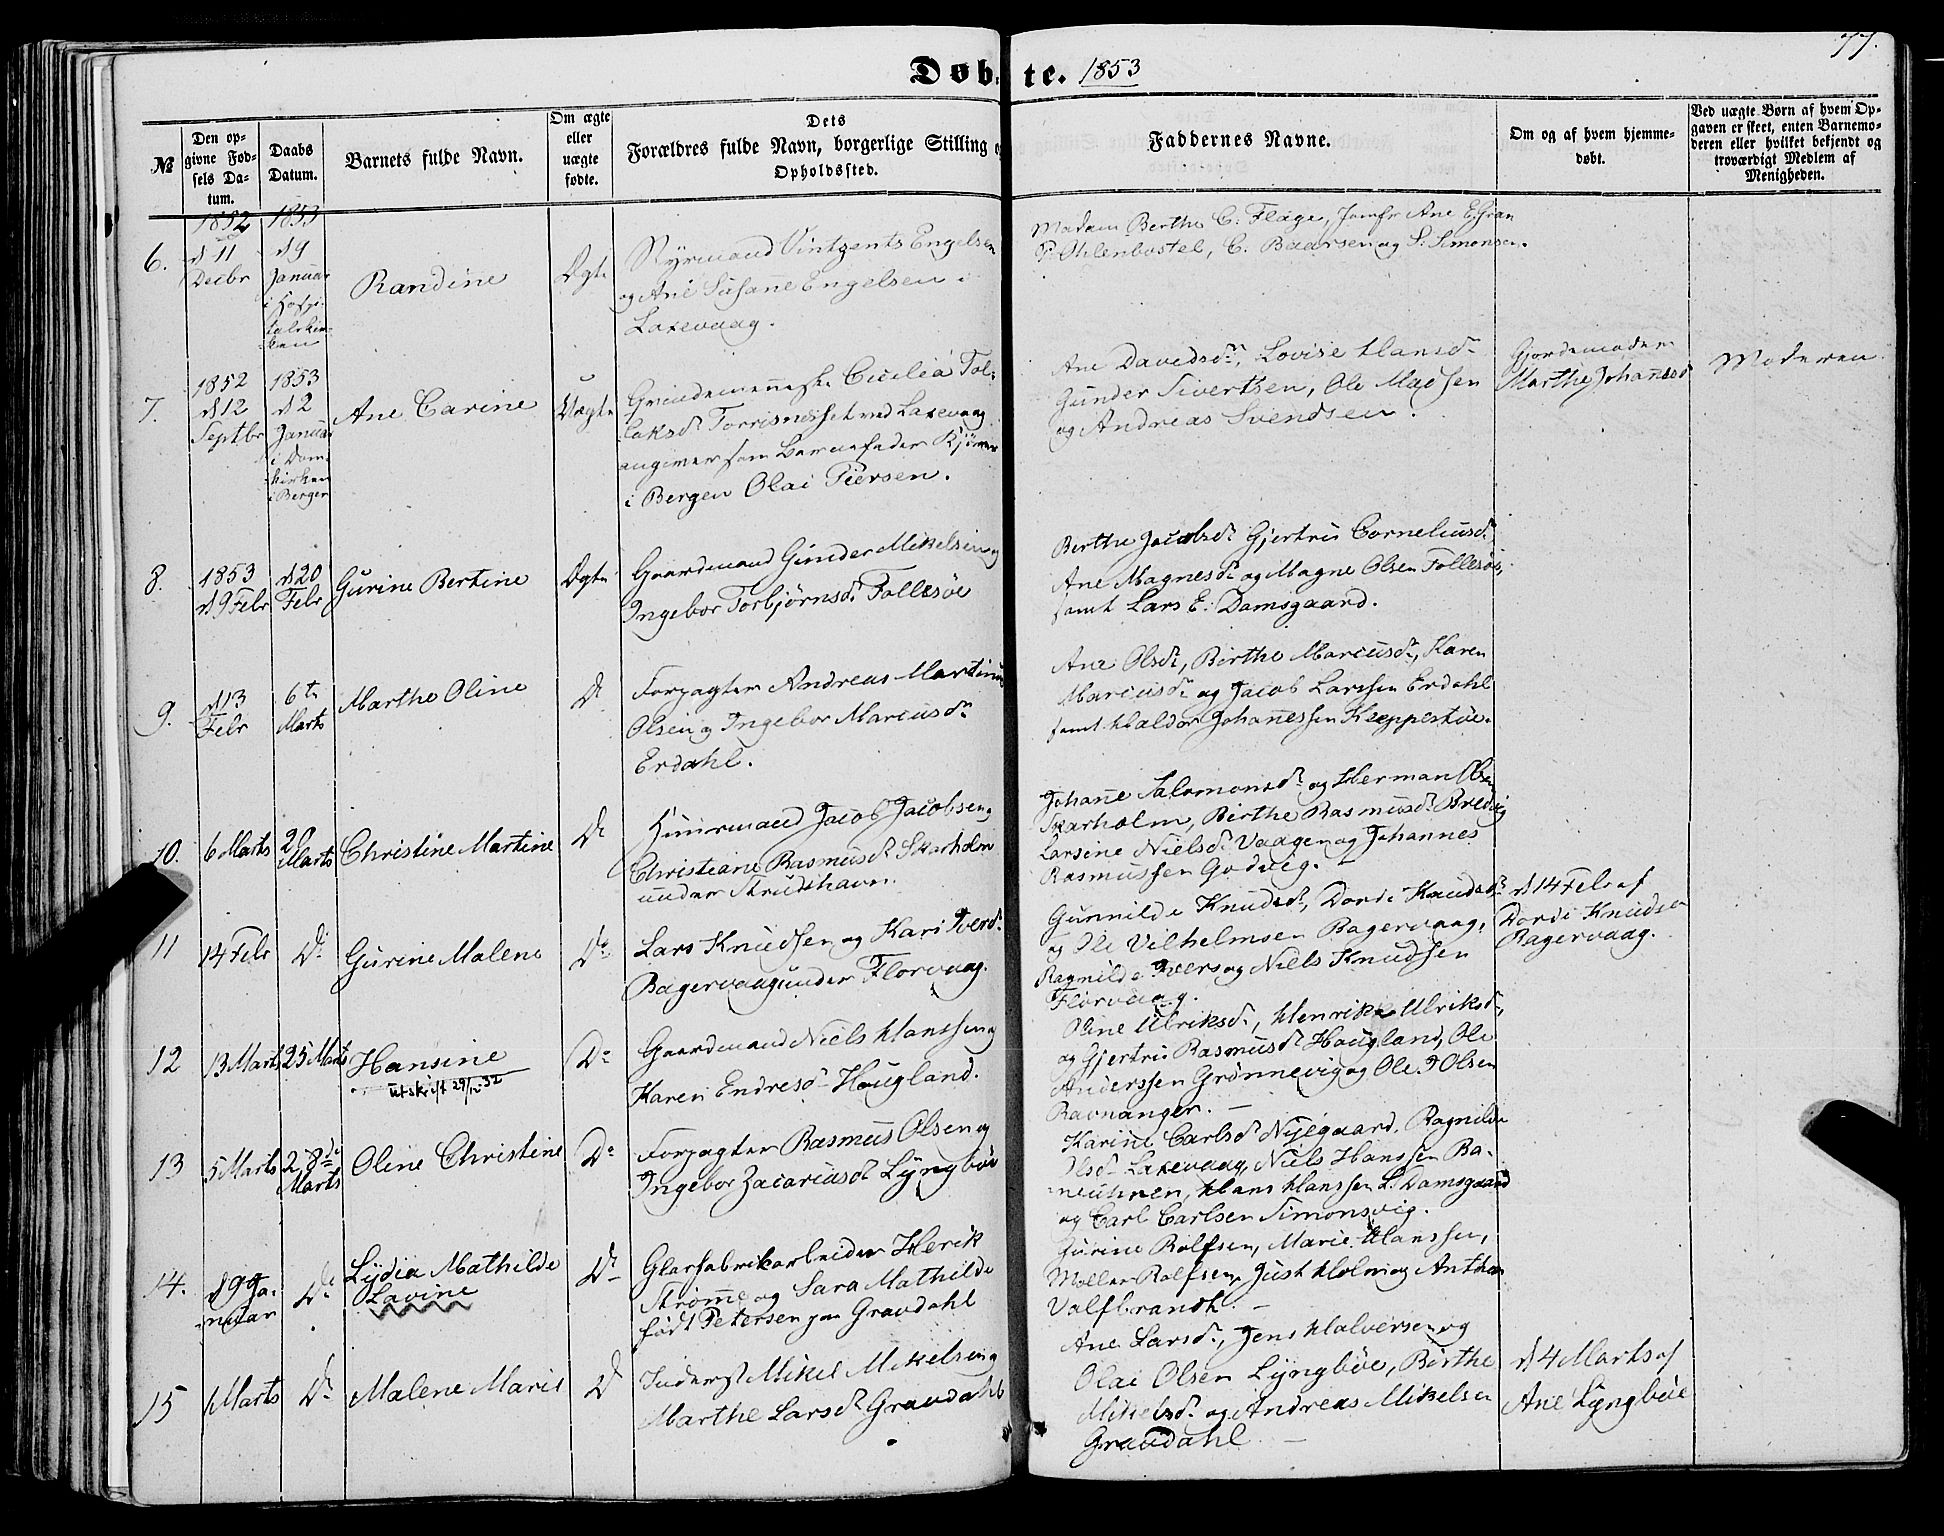 77.
Døbte. 1853
№
Den opgivne Fødsels Datum.
Daabs Datum.
Barnets fulde Navn.
Om ægte eller uægte fødte.
Dets Forældres fulde Navn, borgerlige Stilling og Opholdssted.
Faddernes Navne.
Om og af hvem hjemmedøbt.
Ved uægte Børn af hvem Opgaven er skeet, enten Barnemoderen eller hvilket bekjendt og troværdigt Medlem af Menigheden.
6.
1852
d 11
Decbr
1853
d 9
Januar
i Hospi-
talskir-
ken
Randine
Ægte
Styrmand Vintzents Engelsen
og Ane Susane Engelsen i
Laxevaag.
Madam Berthe C. Flage, Jomfr Ane E. Gran
P. Ohlenbostel, C. Baarsen og S. Simonsen.
7.
1852
d 12
Septbr
1853
d 2
Januar
i Dom-
kirken
i Bergen
Ane Carine
Uægte
Cicelia Tol-
laksd. Torrisnesset ved Laxevaag
angiver som Barnefader
i Bergen Olai Piersen.
Ane Davidsdr, Lovise Hansdr
Gunder Sivertsen, Ole Madsen
og Andreas Svendsen.
Gjordemoder
Marthe Johannesd
Moderen.
8.
1853
d 9 Febr
d 20
Febr
Gurine Bertine
Ægte
Gaardmand Gunder Mikelsen og
Ingebor Torbjørnsdr Follesøe
Berthe Jacobsdr Gjertru Corneliusdr
Ane Magnesdr og Magne Olsen Follesøe,
samt Lars E. Damsgaard.
9.
d 13
Febr
6te
Marts
Marthe Oline
Do
Forpagter Andreas Martinus
Olsen og Ingebor Marcusdr
Erdahl.
Ane Olsdr, Birthe Marcusdr, Karen
Marcusdr og Jacob Larssen Erdahl
samt Haldor Johannessen Kleppestøe.
10.
6 Marts
20
Marts
Christine Martine
Do
Huusmand Jacob Jacobsen og
Christiane Rasmusdr Skarholm
under Strudshavn.
Johane Salomonsdr og Herman Olsen
Skarholm, Birthe Rasmusdr Bredvig
Larsine Nielsdr Vaagen og Johannes
Rasmussen Godvig.
11
14 Febr
Do
Gurine Malene
Do
Lars Knudsen og Kari Iversdr
Bagervaag under Florvaag.
Gunnilde Knudsdr, Dorde Knudsdr
og Ole Vilhelmsen Bagervaag,
Ragnilde Ivers og Niels Knudsen
Florvaag.
d 14 Febr af
Dorde Knudsen
Bagervaag.
12
13 Marts
25 Marts
Hansine
utskrift 29/12 32
Do
Gaardmand Niels Hanssen og
Karen Endresdr Hougland.
Oline Ulriksdr, Henrikke Ulriksdr,
og Gjertru Rasmusdr Hougland, Ole
Anderssen Grønnevig og Ole I Olsen
Ravnanger.
13
5 Marts
28de
Marts
Oline Christine
Do
Forpagter Rasmus Olsen og
Ingebor Zacariasdr Lyngbøe
Karine Carlsdr Nyegaard, Ragnilde
Olsdr Laxevaag, Niels Hanssen
Hans Hanssen L. Damsgaard
og Carl Carlsen Simonsvig.
14.
d 9 Ja-
nuar
Do
Lydia Mathilde
Lavine
Do
Glasfabrikarbeider Henrik
Strømme og Sara Mathilde
født Petersen paa Gravdahl
Gurine Rolfsen, Marie Hanssen,
Møller Rolfsen, Just Holm og Anthon
Valfbrandt.
15
1 Marts
Do
Malene Marie
Do
Inderst Mikel Mikelsen og
Marthe Larsdr Gravdahl
Ane Larsdr, Jens Halversen og
Olai Olsen Lyngbøe, Birthe
Mikelsdr og Andreas Mikelsen
Gravdahl
d 4 Marts af
Ane Lyngbøe